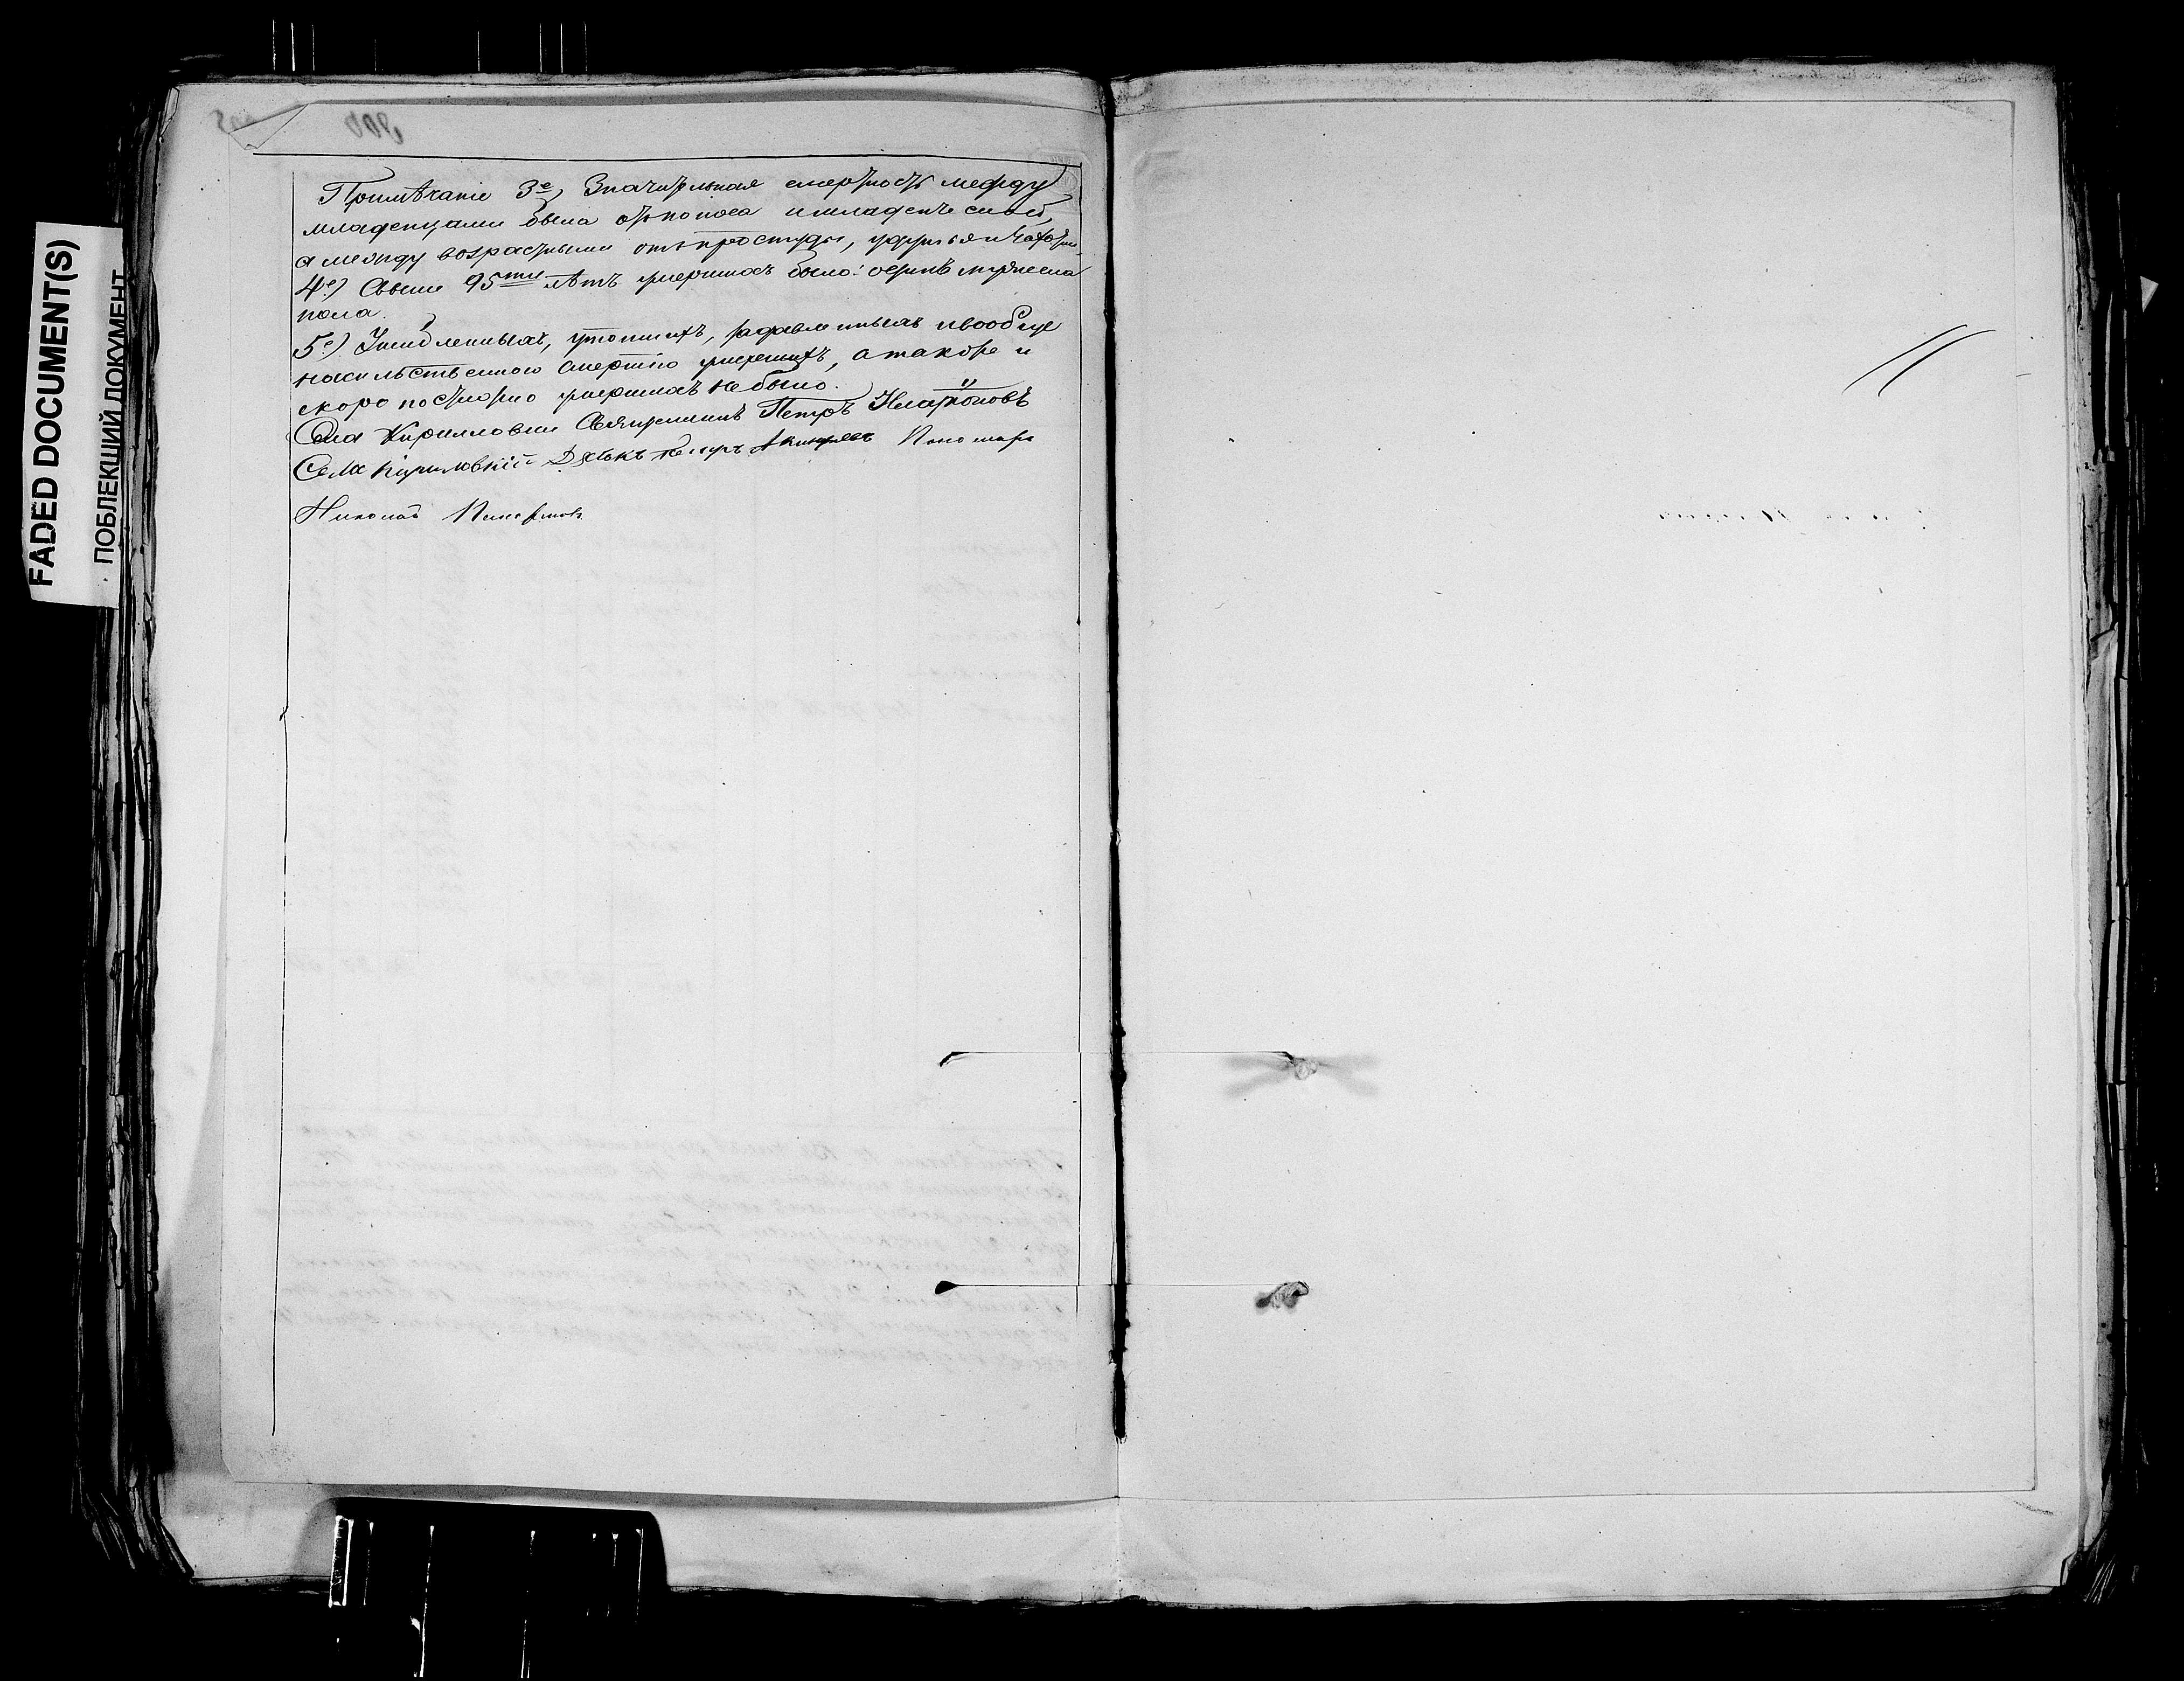 FADED DOCUMENT(S)
ПОБЛЕКШИЙ ДОКУМЕНТ
Примѣчаніе 3е) Значительная смертность между
младенцами была отъ поноса и младенческой,
а между возрастными отъ простуды, удушья и чахотки
4е) Свыше 95ти лѣтъ умершихъ было: одинъ мужеска
пола.
5е) Ушибленныхъ, утопшихъ, задавленныхъ и вообще
насильственною смертію умершихъ, а также и
скоропостижно умершихъ не было.
Села Кирилловки Священникъ Петръ
Села Дьякъ Петръ Пономарь
Николай